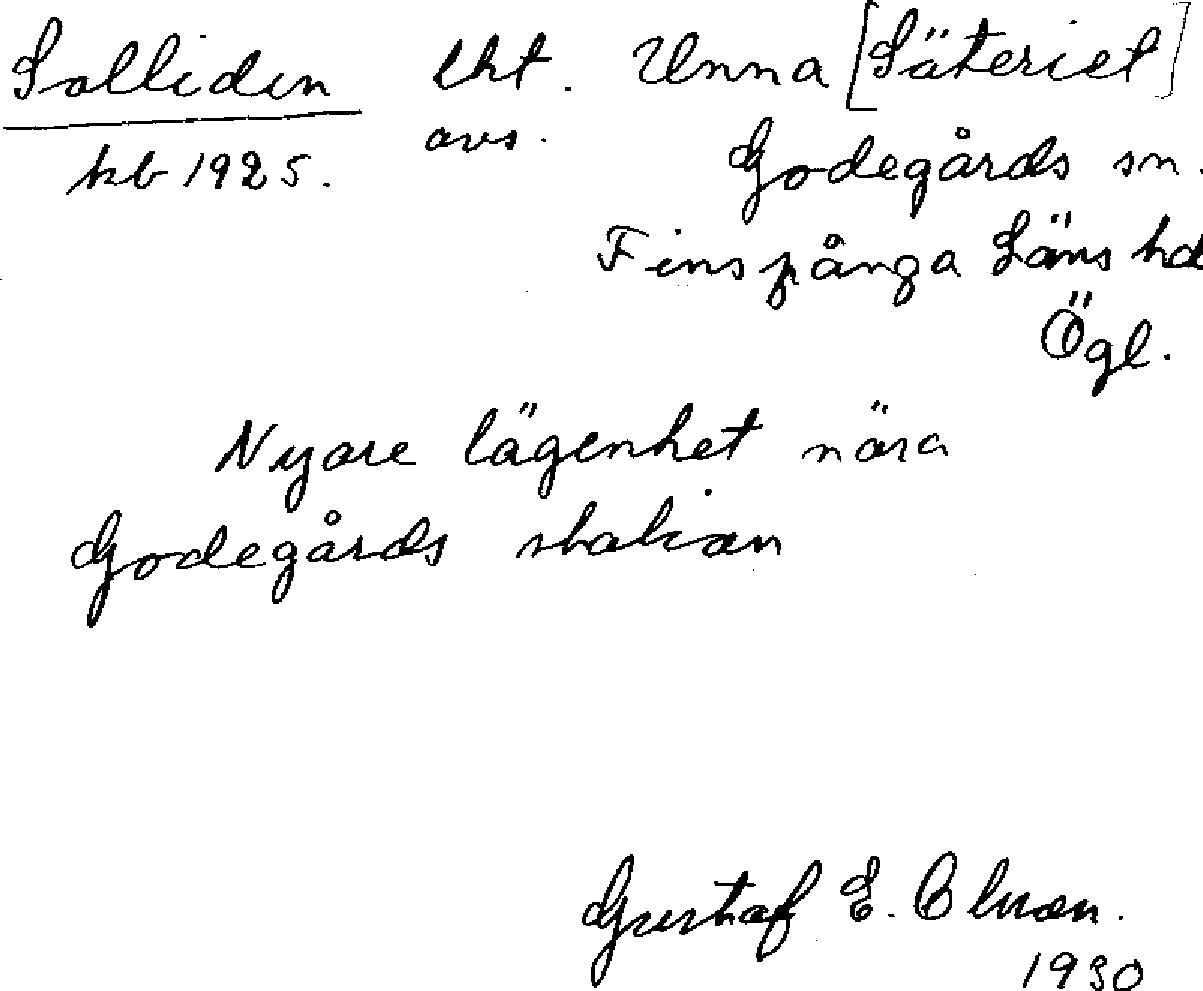 Solliden lht. Unna [Säteriet]
avs.
kb 1925. Godegårds sn.
Finspånga Läns hd
Ögl.
Nyare lägenhet nära
Godegårds station
Gustaf E. Olsson.
1930